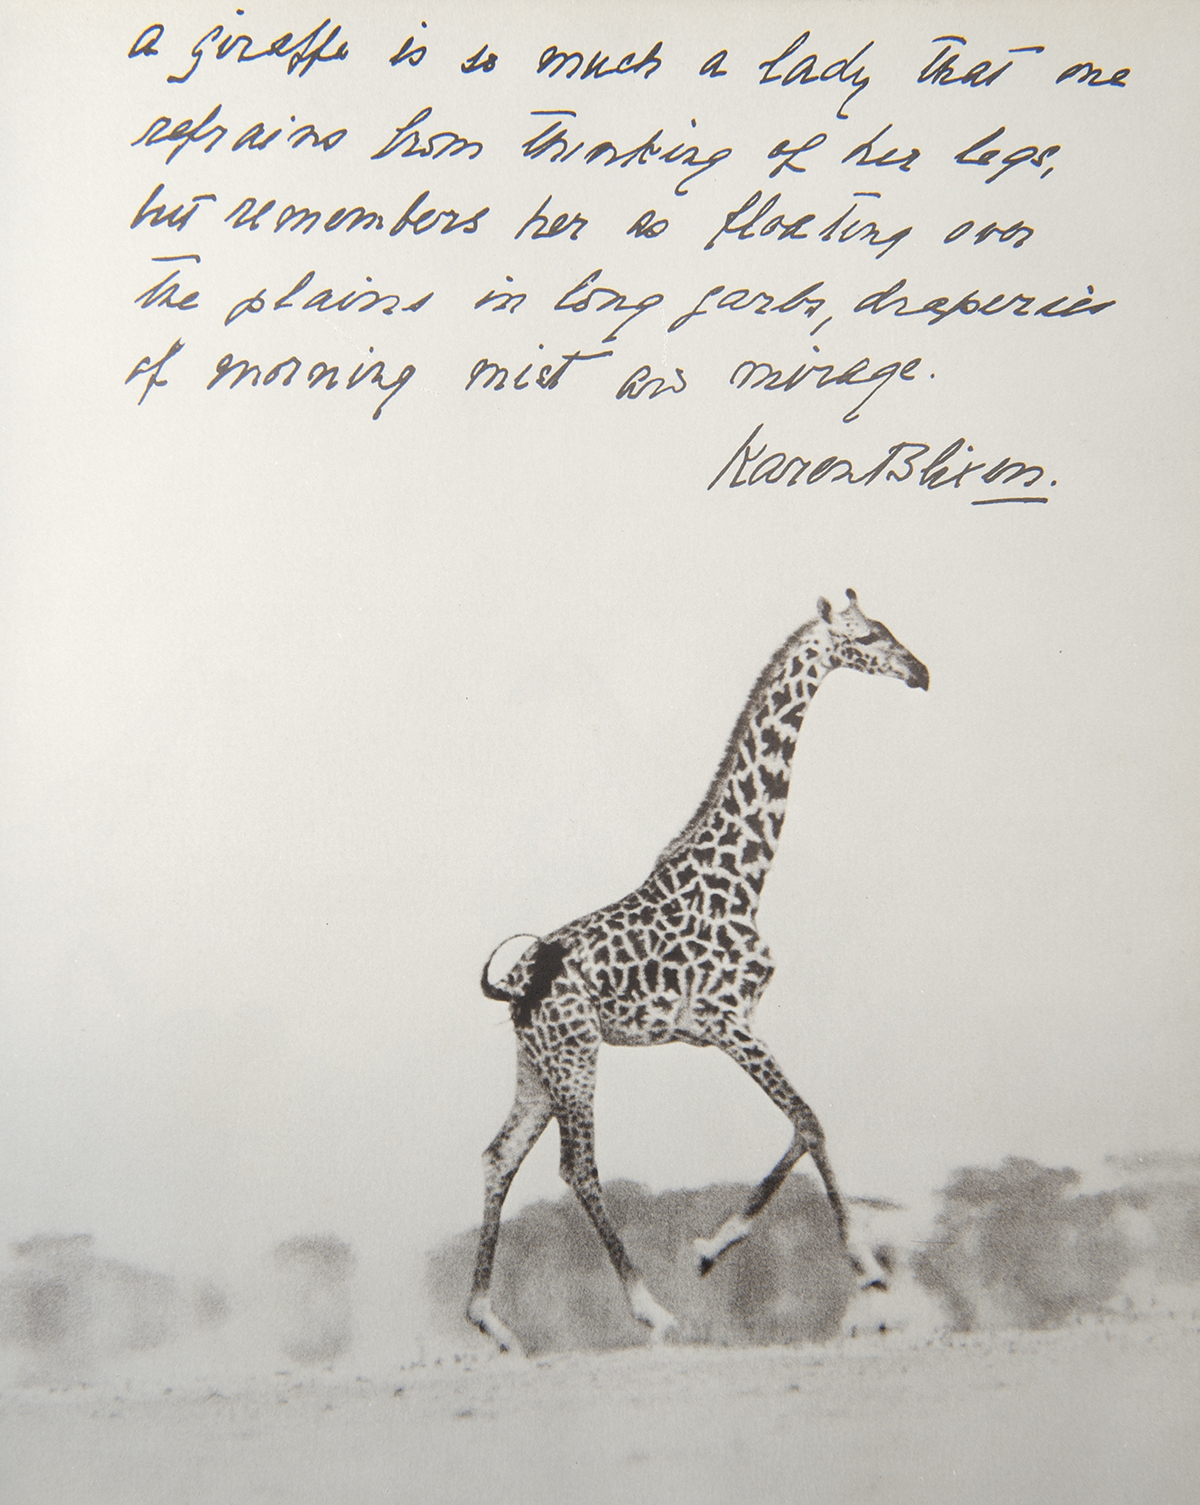 a giraffe is so much a lady that one
refrains from thinking of her legs,
but remembers her as floating over
the plains in long garbs, draperies
of morning mist and mirage.
Karen Blixen.